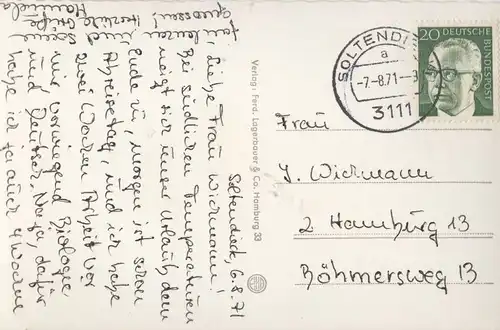 Soltendieck, 6.8.71
Liebe Frau Wichmann!
Bei südlichen Temperaturen
neigt sich unser Urlaub dem
Ende zu, morgen ist schon
Abreisetag, und ich habe
zwei Wochen Arbeit vor
mir, vorwiegend Biologie
und Deutsch. Na ja, dafür
habe ich ja auch 4 Wochen
genossen!
Herzliche Grüße
Verlag: Ferd. Lagerbauer & Co. Hamburg 33
SOLTENDI
a
-7.-8.71-
3111
20
DEUTSCHE
BUNDESPOST
Frau
J. Wichmann
2 Hamburg 13
Böhmersweg 13